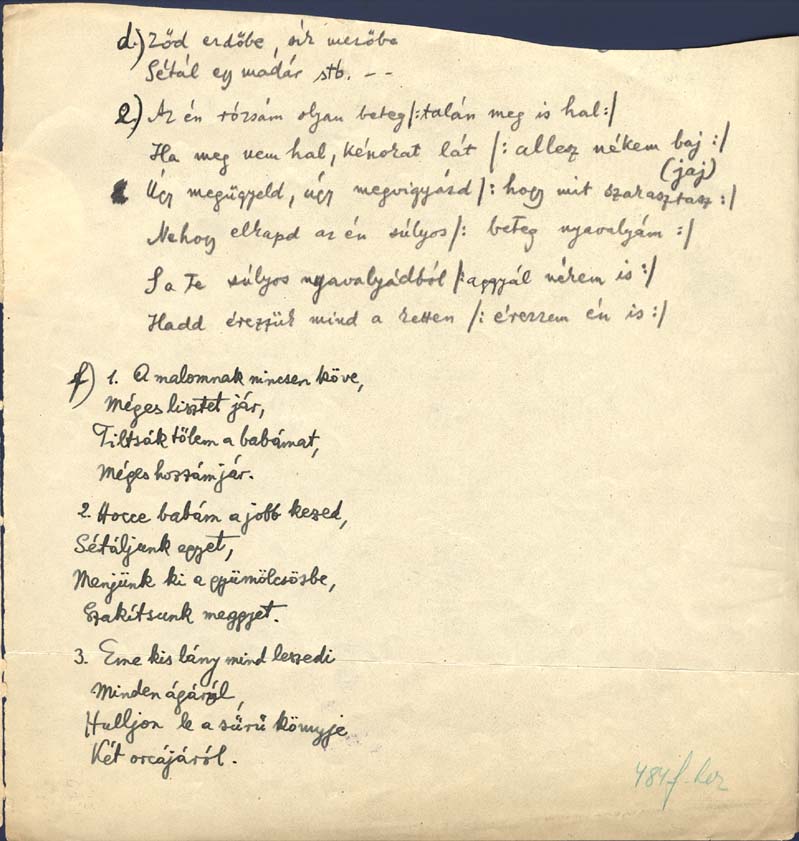 d.) Ződ erdőbe, sík mezőbe
Sétál egy madár stb. - -
e.) Az én rózsám oljan beteg /: talán meg is hal :/
Ha meg nem hal, kénokat lát /: allesz nékem baj :/
(jaj)
Úgy megügyeld, úgy megvigyázd /: hogy mit szakasztasz :/
Nehogy elkapd az én súlyos /: beteg nyavalyám :/
S a Te súlyos nyavalyádból /: aggyál nékem is :/
Hadd érezzük mind a ketten /: érezzem én is :/
f) 1. A malomnak nincsen köve,
Méges lisztet jár,
Tiltsák tőlem a babámat,
Méges hozzám jár.
2. Hocce babám a jobb kezed,
Sétáljunk egyet,
Menjünk ki a gyümölcsösbe,
Szakítsunk meggyet.
3. Eme kis lány mind leszedi
Minden ágáról,
Hulljon le a sűrű könnyje
Két orcájáról.
484f.